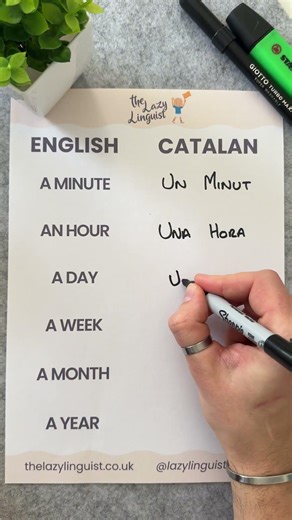 the
Lazy
Linguist
ENGLISH CATALAN
A MINUTE UN MINUT
AN HOUR UNA HORA
A DAY U
A WEEK
A MONTH
A YEAR
thelazylinguist.co.uk @lazylinguist
Sharpie
GIOTTO TURBO MA
STA